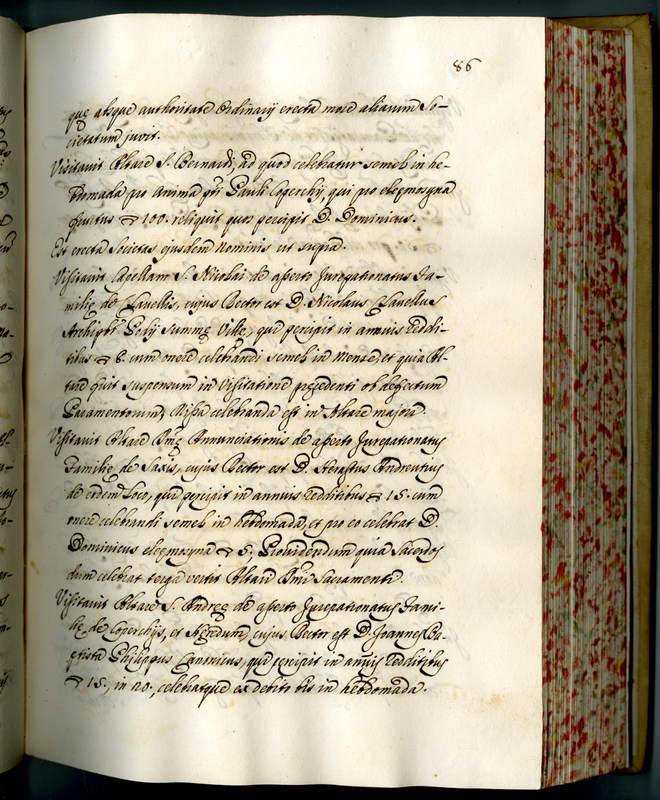 86
que absque authoritate Ordinarij erecta more aliarum So-
cietatum juvit.
Visitavit Altare S. Bernardi, ad quod celebratur semel in he-
bdomada pro Anima qm Pauli Coperchij, qui pro eleemosyna
fructus 100. reliquit quos percipit D. Dominicus.
Est erecta Societas ejusdem Nominis ut supra.
Visitavit Capellam S. Nicolai de asserto Jurepationatus Fa-
milie de Clavellis, cujus Rector est D. Nicolaus Clavellus
Archipbr Summe Ville, que percipit in annuis reddi-
tibus 6. cum onere celebrandi semel in Mense, et quia Al-
tare fuit suspensum in Visitatione precedenti ob defectum
Paramentorum, Missa celebranda est in Altare majori.
Visitavit Altare Bme Annunciationis de asserto Jurepationatus
Familie de Saxis, cujus Rector est D. Andreutius
de eodem Loco, que percipit in annuis redditibus 15. cum
onere celebrandi semel in hebdomada, et pro eo celebrat D.
Dominicus eleemosyna 5. Providendum quia Sacerdos
dum celebrat terga vertit Altari Smi Sacramenti.
Visitavit Altare S. Andree de asserto Jurepationatus Fami-
lie de Coperchijs, et Heredum, cujus Rector est D. Joannes Ba-
ptista Philippus Canonicus, qui percipit in annuis redditibus
15., in 20., celebratque ex debito bis in hebdomada.